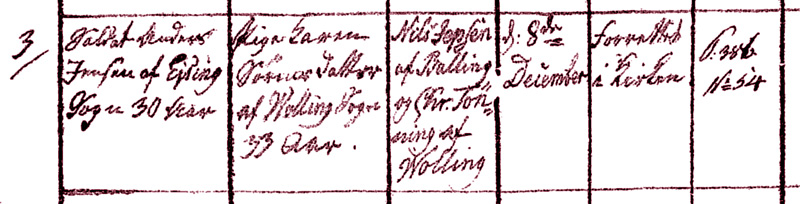 3/
Soldat Anders
Jensen af Eising
Sogn 30 Aar
Pige Karen
Sörensdatter
af Wolling Sogn
33 Aar.
Nils Jepsen
af Balling
og Chr. Ton-
ning af
Wolling
d: 8de
December
Forrettet
i Kirken
P. 386
No 54